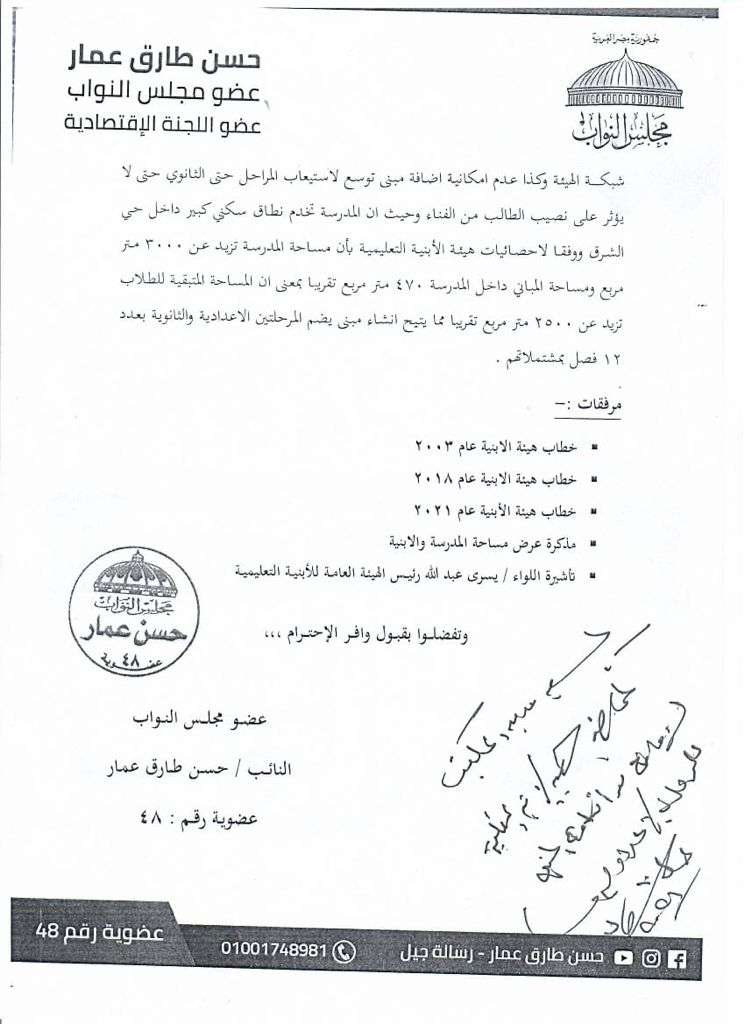 جمهورية مصر العربية
مجلس النواب
حسن طارق عمار
عضو مجلس النواب
عضو اللجنة الإقتصادية
شبكة الهيئة وكذا عدم امكانية اضافة مبنى توسع لاستيعاب المراحل حتى الثانوي حتى لا
يؤثر على نصيب الطالب من الفناء وحيث ان المدرسة تخدم نطاق سكني كبير داخل حي
الشرق ووفقا لاحصائيات هيئة الأبنية التعليمية بأن مساحة المدرسة تزيد عن ٣٠٠٠ متر
مربع ومساحة المباني داخل المدرسة ٤٧٠ متر مربع تقريبا بمعنى ان المساحة المتبقية للطلاب
تزيد عن ٢٥٠٠ متر مربع تقريبا مما يتيح انشاء مبنى يضم المرحلتين الاعدادية والثانوية بعدد
١٢ فصل بمشتملاتهم .
مرفقات :–
▪ خطاب هيئة الابنية عام ٢٠٠٣
▪ خطاب هيئة الابنية عام ٢٠١٨
▪ خطاب هيئة الأبنية عام ٢٠٢١
▪ مذكرة عرض مساحة المدرسة والابنية
▪ تأشيرة اللواء / يسرى عبد الله رئيس الهيئة العامة للأبنية التعليمية
وتفضلوا بقبول وافر الإحترام ،،،
مجلس النواب
حسن عمار
عضوية ٤٨
عضو مجلس النواب
النائب / حسن طارق عمار
عضوية رقم : ٤٨
حسن طارق عمار - رسالة جيل
01001748981
عضوية رقم 48